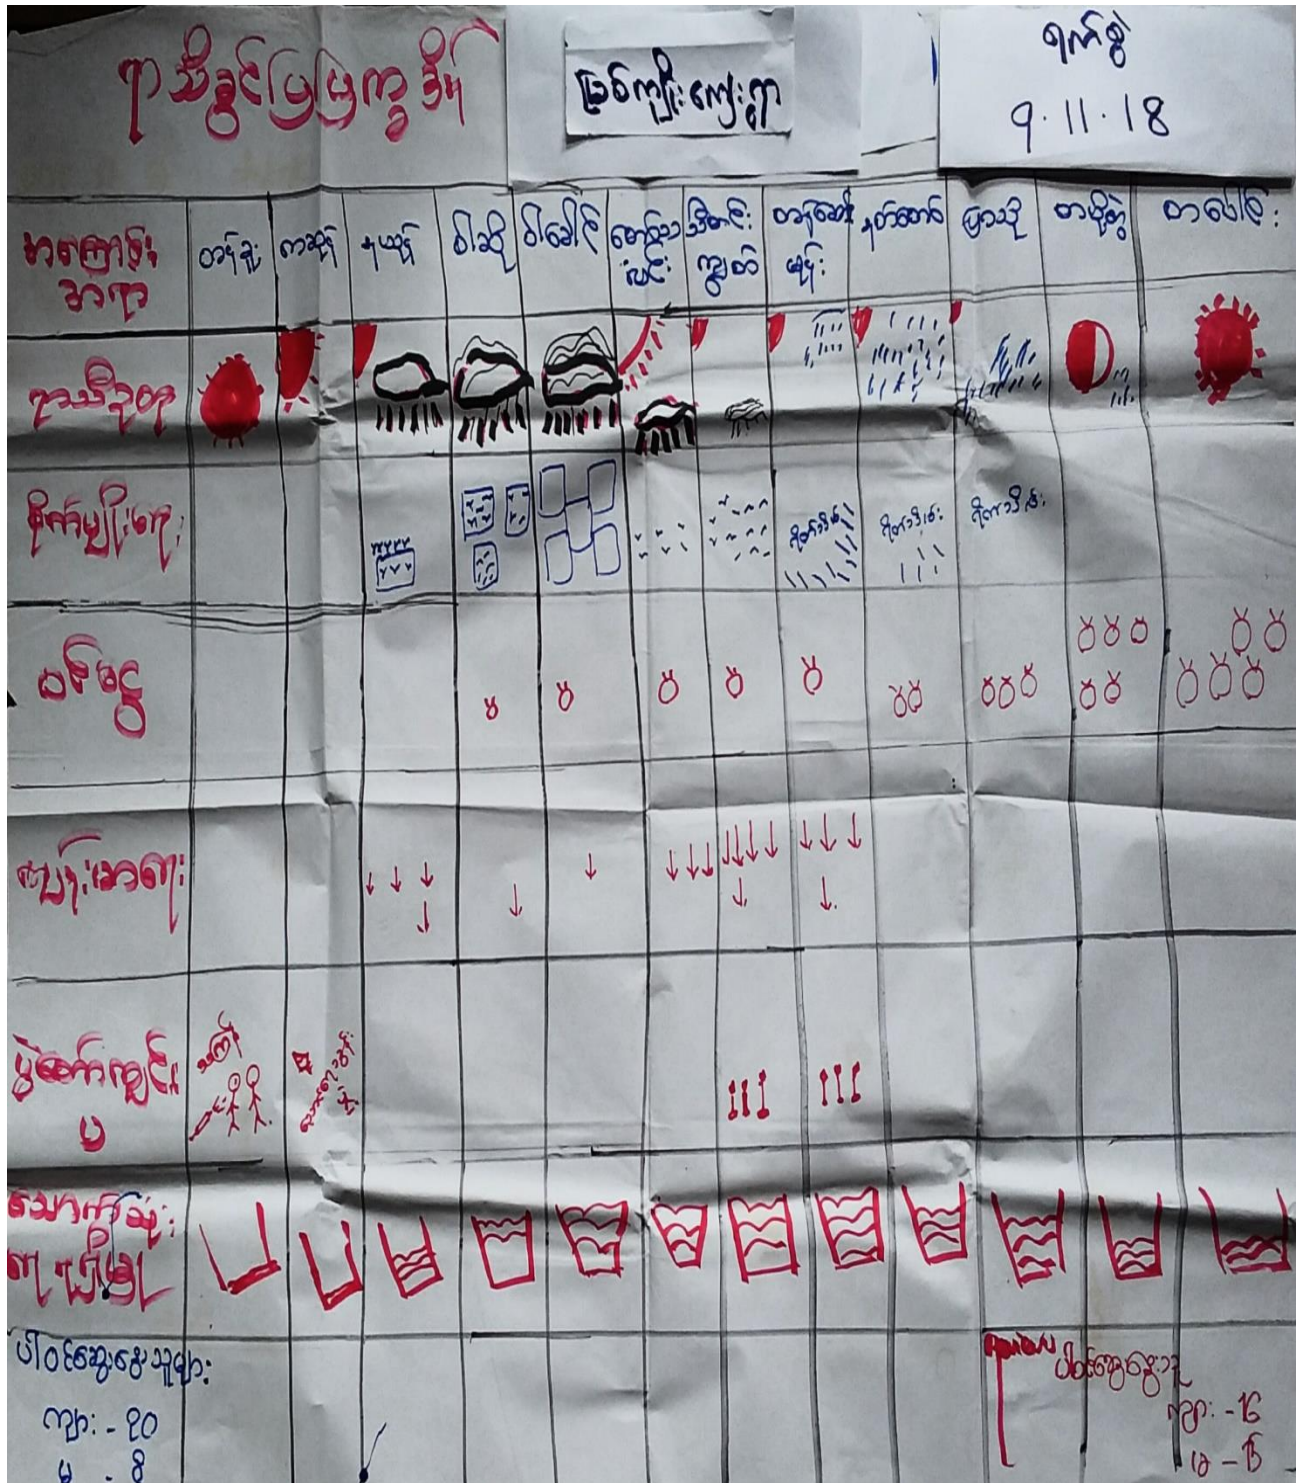 ရာသီခွင်ပြပြက္ခဒိန်
မြစ်ကျိုးကျေးရွာ
ရက်စွဲ
9.11.18
အကြောင်း
အရာ
တန်ခူး
ကဆုန်
နယုန်
ဝါဆို
ဝါခေါင်
တော်သလင်း
သီတင်း
ကျွတ်
တန်ဆောင်
မုန်း
နတ်တော်
ပြာသို
တပို့တွဲ
တပေါင်း
ရာသီဥတု
စိုက်ပျိုးရေး
ရိတ်သိမ်း
ရိတ်သိမ်း
ရိတ်သိမ်း
ဝင်ငွေ
ကျန်းမာရေး
ပွဲတော်ကျင်း
ပ
သင်္ကြန်
သောက်သုံး
ရေရရှိမှု
ပါဝင်ဆွေးနွေးသူများ
ကျား - ၃၀
မ - ၆
ပါဝင်ဆွေးနွေးသူ
ကျား - 16